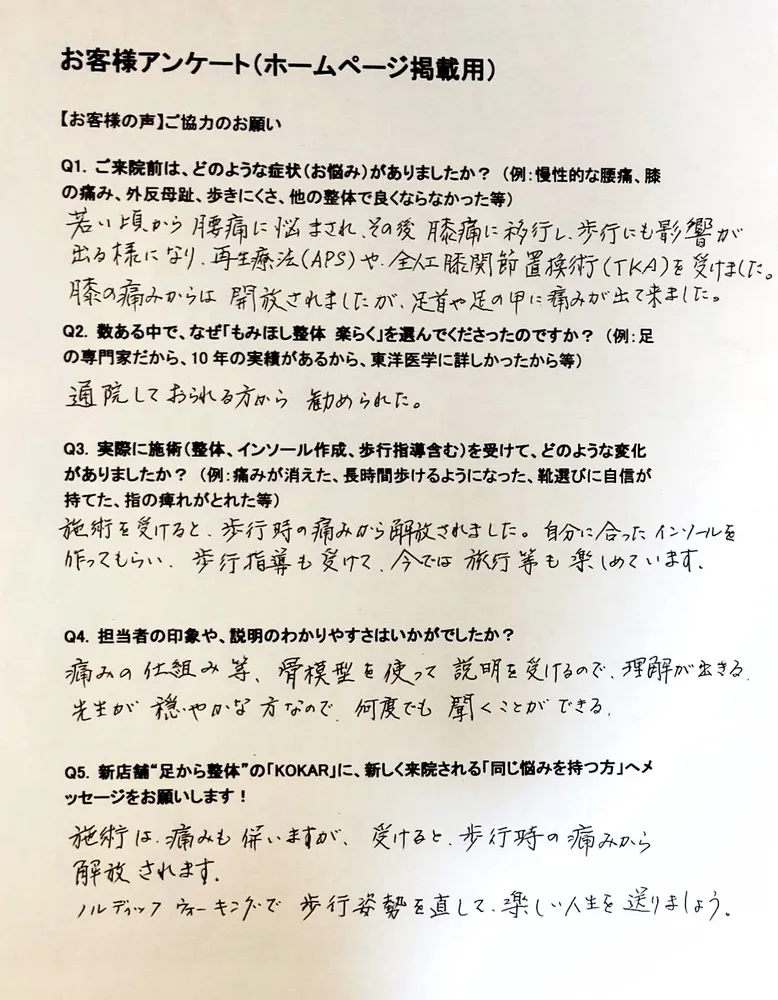 お客様アンケート(ホームページ掲載用)
【お客様の声】ご協力のお願い
Q1. ご来院前は、どのような症状(お悩み)がありましたか? (例:慢性的な腰痛、膝
の痛み、外反母趾、歩きにくさ、他の整体で良くならなかった等)
若い頃から腰痛に悩まされ、その後膝痛に移行し、歩行にも影響が
出る様になり、再生療法(APS)や、全人工膝関節置換術(TKA)を受けました。
膝の痛みからは開放されましたが、足首や足の甲に痛みが出て来ました。
Q2. 数ある中で、なぜ「もみほし整体 楽らく」を選んでくださったのですか? (例:足
の専門家だから、10年の実績があるから、東洋医学に詳しかったから等)
通院しておられる方から勧められた。
Q3. 実際に施術(整体、インソール作成、歩行指導含む)を受けて、どのような変化
がありましたか? (例:痛みが消えた、長時間歩けるようになった、靴選びに自信が
持てた、指の痺れがとれた等)
施術を受けると、歩行時の痛みから解放されました。自分に合ったインソールを
作ってもらい、歩行指導も受けて、今では旅行等も楽しめています。
Q4. 担当者の印象や、説明のわかりやすさはいかがでしたか?
痛みの仕組み等、骨模型を使って説明を受けるので、理解が出きる。
先生が穏やかな方なので、何度でも聞くことができる。
Q5. 新店舗“足から整体”の「KOKAR」に、新しく来院される「同じ悩みを持つ方」へメ
ッセージをお願いします!
施術は、痛みも併いますが、受けると、歩行時の痛みから
解放されます。
ノルディックウォーキングで歩行姿勢を直して、楽しい人生を送りましょう。